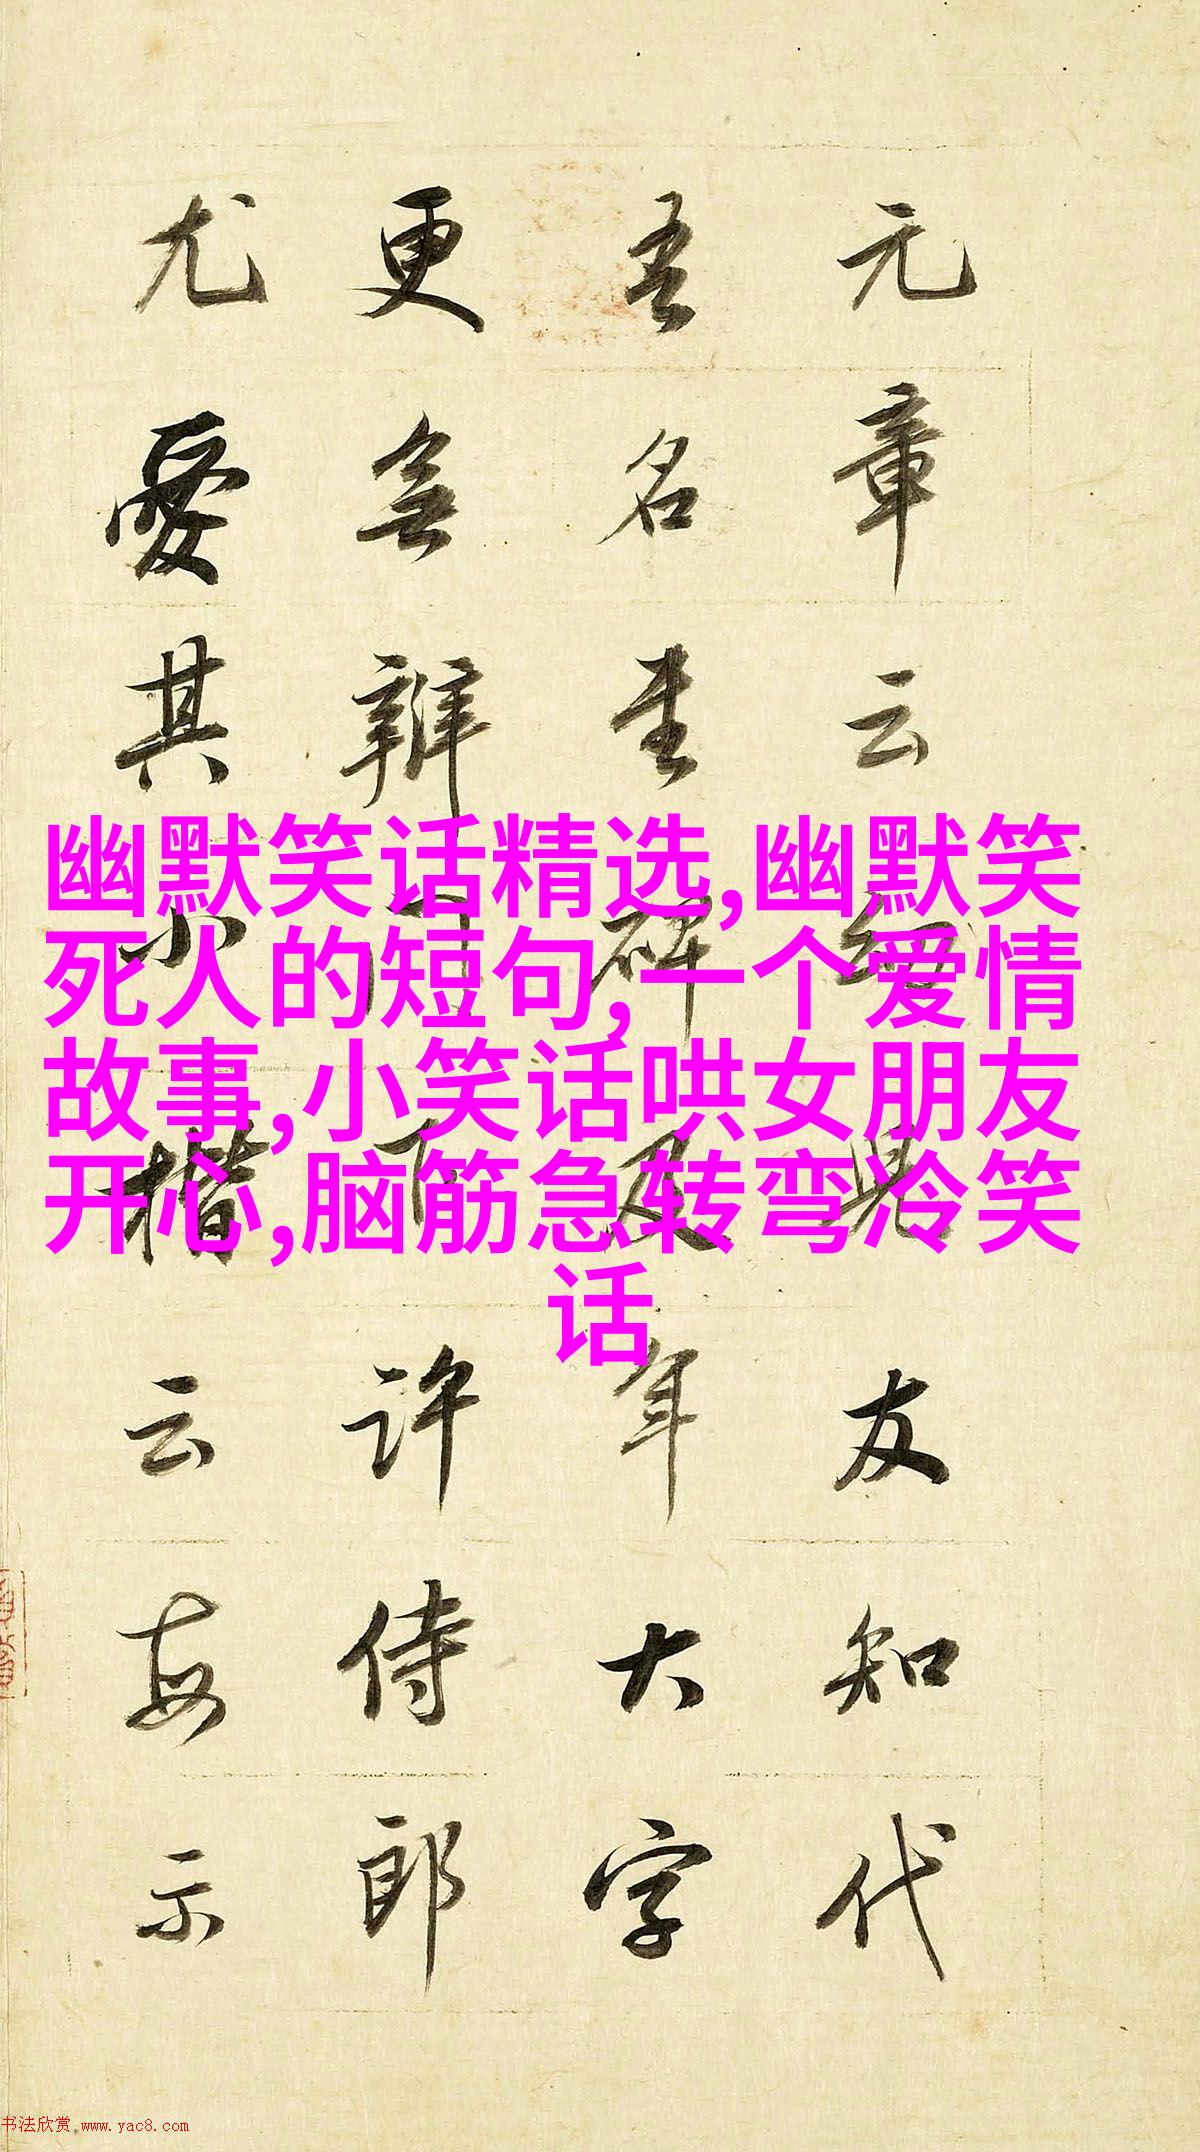 元章云友知代
吾名書碑及年大字
更無辨門下許侍郎
尤愛其小楷云每示
幽默笑话精选,幽默笑
死人的短句,一个爱情
故事,小笑话哄女朋友
开心,脑筋急转弯冷笑
话
书法欣赏 www.yac8.com